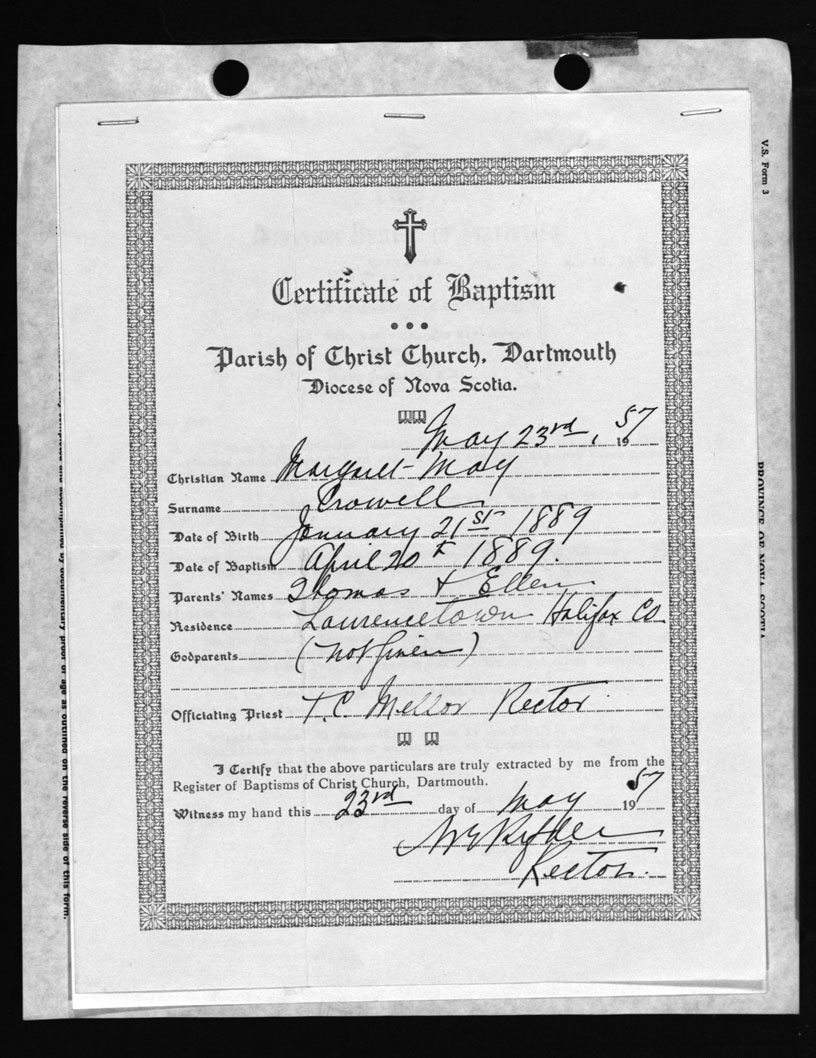 V.S. Form 3
Certificate of Baptism
Parish of Christ Church, Dartmouth
Diocese of Nova Scotia.
May 23rd, 1957
Christian Name Margaret May
Surname Crowell
Date of Birth January 21st 1889
Date of Baptism April 20th 1889.
Parents' Names Thomas & Ellen
Residence Lawrencetown Halifax Co
Godparents (not given)
Officiating Priest T.C. Mellor Rector
I Certify that the above particulars are truly extracted by me from the
Register of Baptisms of Christ Church, Dartmouth.
Witness my hand this 23rd day of May 1957
Rector.
PROVINCE OF NOVA SCOTIA
documentary proof of age as outlined on the reverse side of this form.